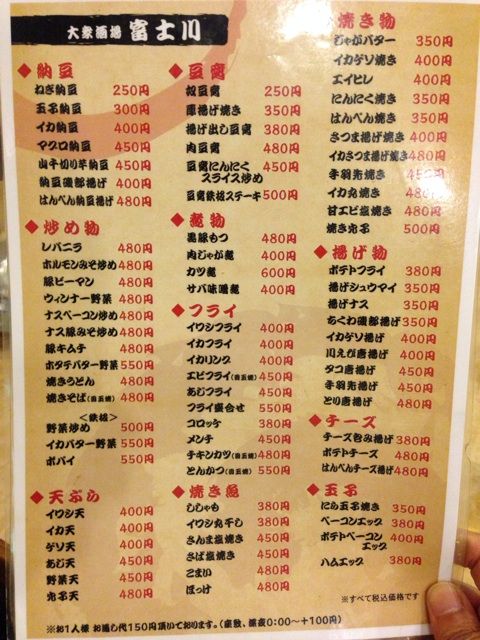 大衆酒場 富士川
◆納豆
ねぎ納豆 250円
玉子納豆 300円
イカ納豆 400円
マグロ納豆 450円
山芋千切り納豆 450円
納豆磯部揚げ 400円
はんぺん納豆揚げ 480円
◆炒め物
レバニラ 480円
ホルモンみそ炒め 480円
豚ピーマン 480円
ウィンナー野菜 480円
ナスベーコン炒め 480円
ナス豚みそ炒め 480円
豚キムチ 480円
ホタテバター野菜 550円
焼きうどん 480円
焼きそば(目玉焼) 480円
<鉄板>
野菜炒め 500円
イカバター野菜 550円
ポパイ 550円
◆天ぷら
イワシ天 400円
イカ天 400円
ゲソ天 400円
あじ天 450円
野菜天 450円
穴子天 480円
◆豆腐
奴豆腐 250円
厚揚げ焼き 350円
揚げ出し豆腐 380円
肉豆腐 480円
豆腐にんにくスライス炒め 450円
豆腐鉄板ステーキ 500円
◆煮物
黒豚もつ 480円
肉じゃが煮 480円
カツ煮 600円
サバ味噌煮 400円
◆フライ
イワシフライ 400円
イカフライ 400円
イカリング 400円
エビフライ(目玉焼) 450円
あじフライ 450円
フライ盛合せ 550円
コロッケ 380円
メンチ 450円
チキンカツ(目玉焼) 480円
とんかつ(目玉焼) 550円
◆焼き魚
ししゃも 380円
イワシ丸干し 380円
さんま塩焼き 450円
さば塩焼き 450円
こまい 480円
ほっけ 480円
◆焼き物
じゃがバター 350円
イカゲソ焼き 400円
エイヒレ 400円
にんにく焼き 350円
はんぺん焼き 350円
さつま揚げ焼き 400円
イカさつま揚げ焼き 480円
手羽先焼き 450円
イカ丸焼き 480円
甘エビ塩焼き 480円
焼き穴子 500円
◆揚げ物
ポテトフライ 380円
揚げシュウマイ 350円
揚げナス 350円
ちくわ磯部揚げ 350円
イカゲソ揚げ 400円
川えび唐揚げ 400円
タコ唐揚げ 450円
手羽先揚げ 450円
とり唐揚げ 480円
◆チーズ
チーズ包み揚げ 380円
ポテトチーズ 480円
はんぺんチーズ揚げ 480円
◆玉子
にら玉子焼き 400円
ベーコンエッグ 400円
ポテトベーコンエッグ 400円
ハムエッグ 380円
※すべて税込価格です
※お1人様 お通し代150円頂いております。(座敷、深夜0:00〜+100円)